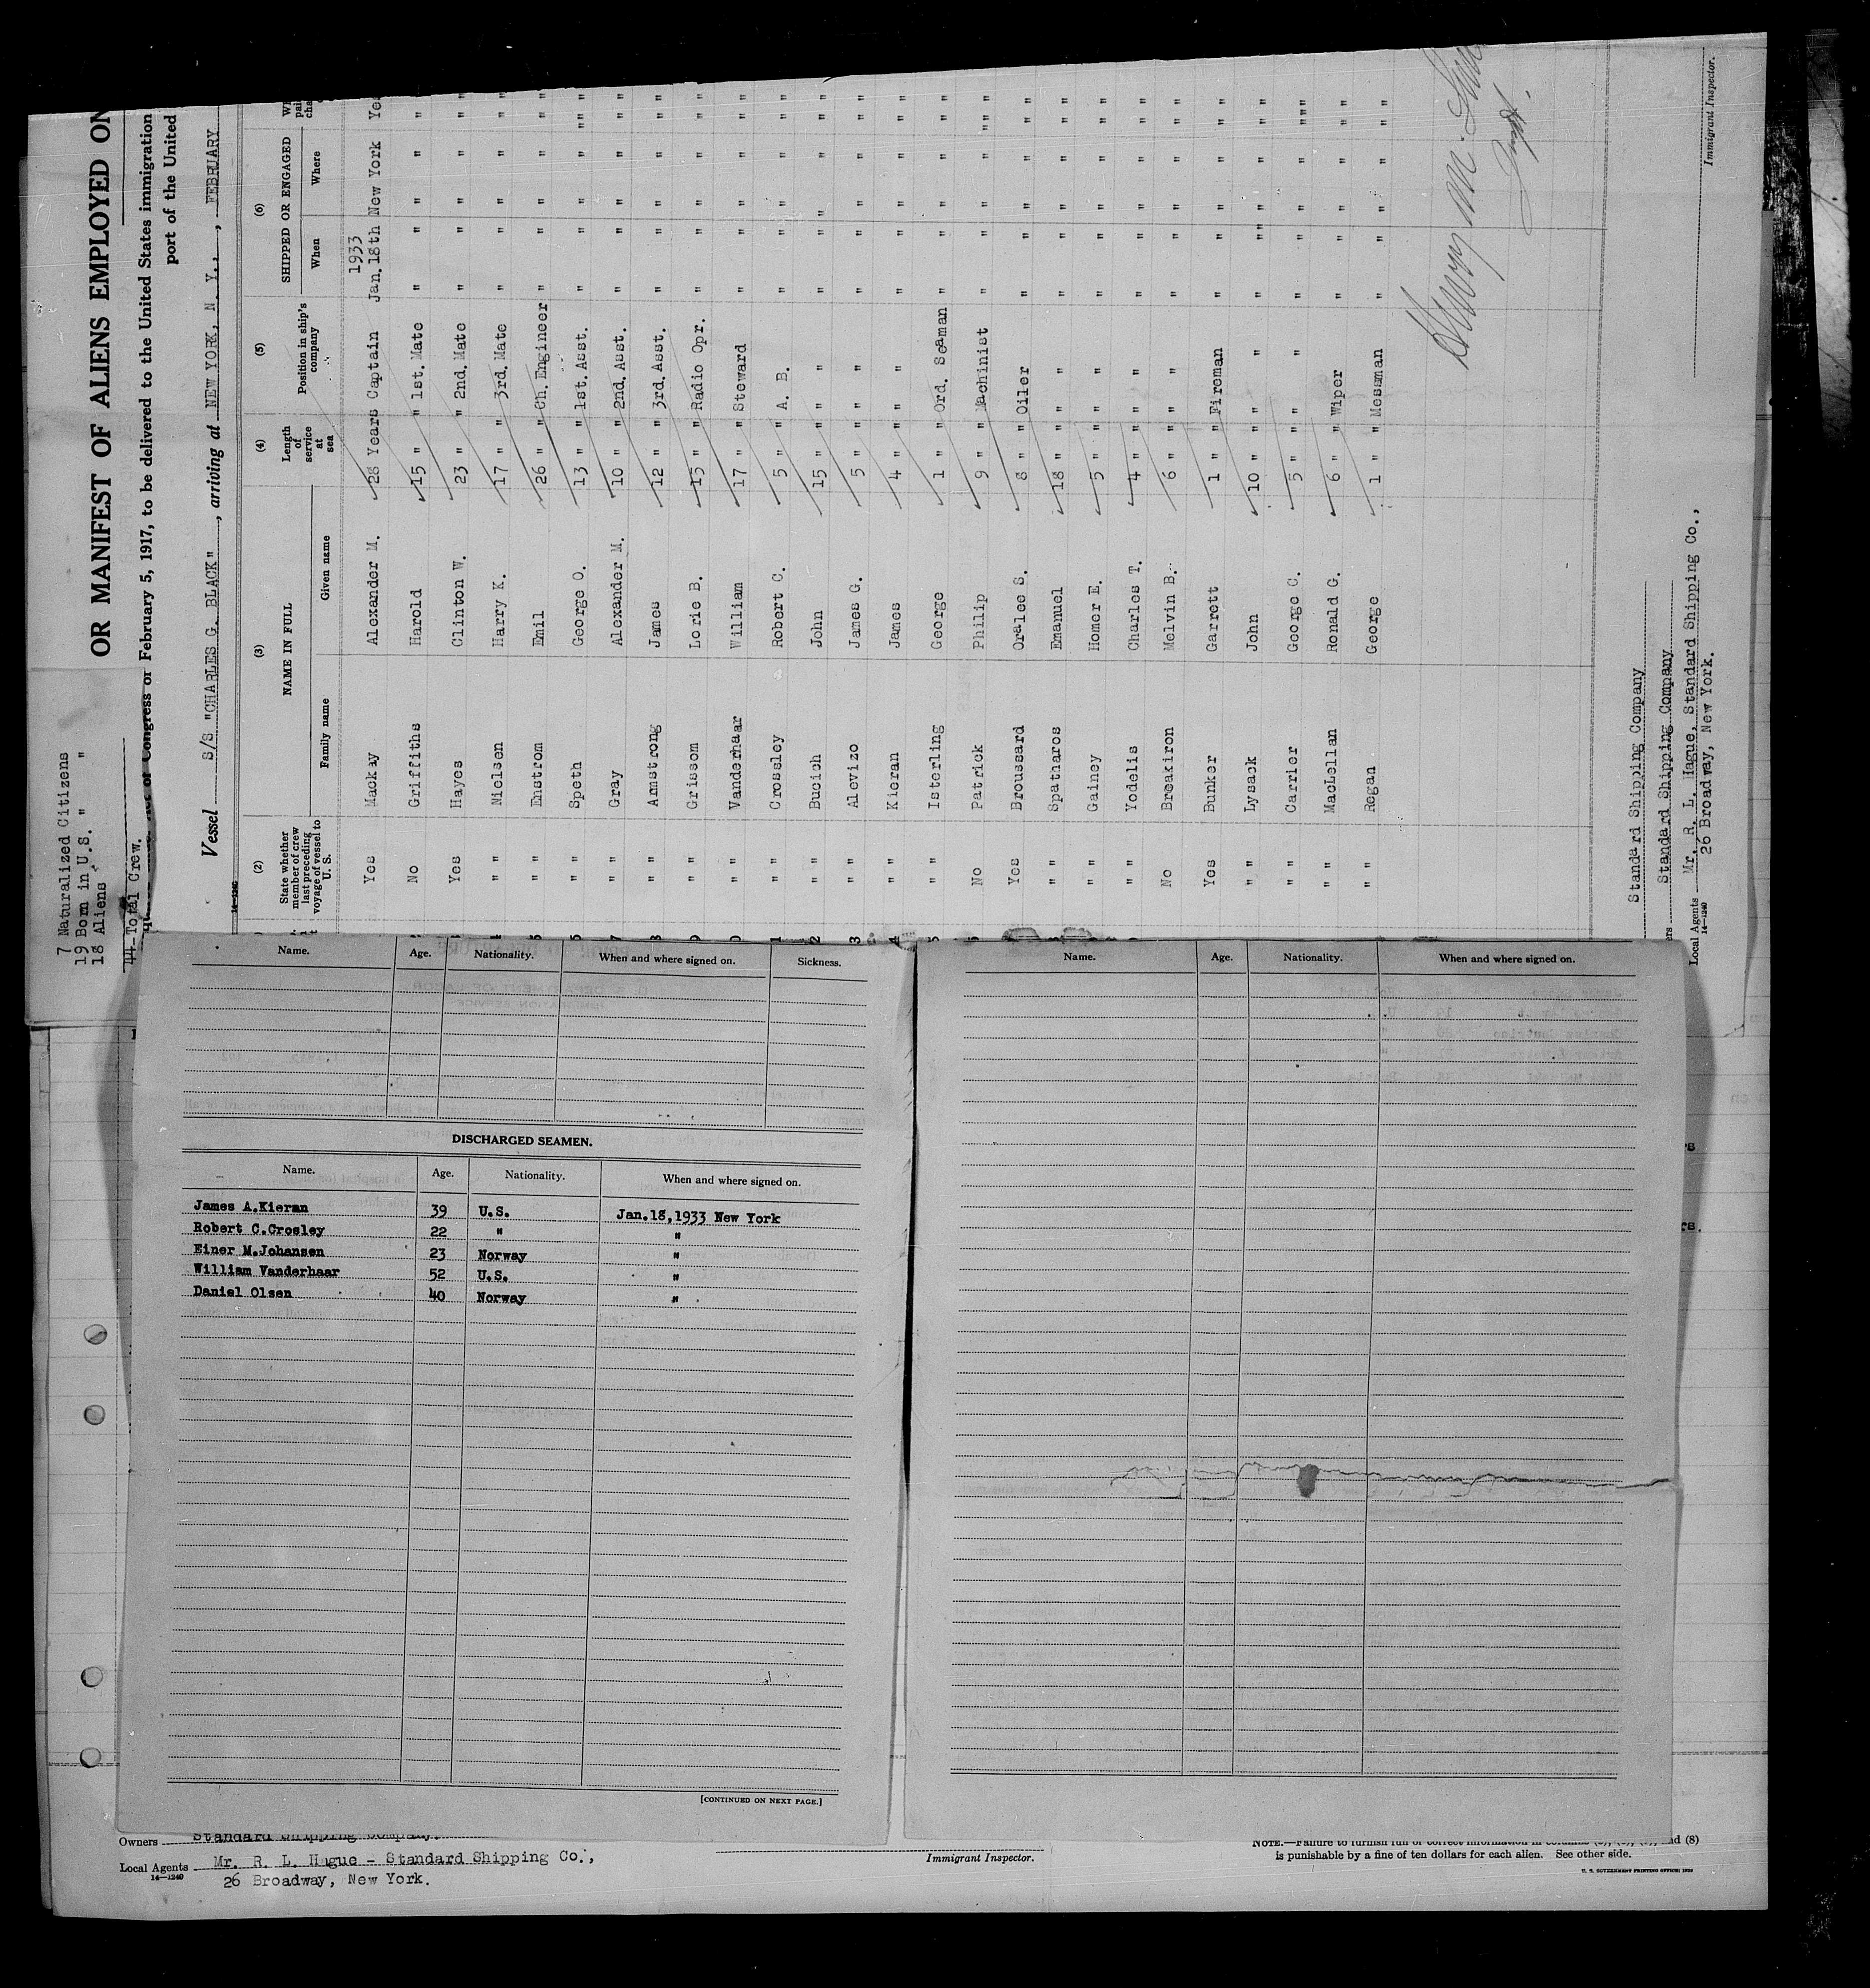 7 Naturalized Citizens
19 Born in U.S. " "
18 Aliens " "
44-Total Crew.
OR MANIFEST OF ALIENS EMPLOYED ON
Congress or February 5, 1917, to be delivered to the United States immigration
port of the United
Vessel S/S "CHARLES G. BLACK", arriving at NEW YORK, N. Y., , FEBRUARY
14-1240
(2) (3) (4) (5) (6)
State whether member of crew last preceding voyage of vessel to U. S. NAME IN FULL Length of service at sea Position in ship's company SHIPPED OR ENGAGED
Family name Given name When Where
1933
Yes Mackay Alexander M. 28 Years Captain Jan.18th New York Yes
No Griffiths Harold 15 " " 1st. Mate " " " "
Yes Hayes Clinton W. 23 " " 2nd. Mate " " " "
" " Nielsen Harry K. 17 " " 3rd. Mate " " " "
" " Enstrom Emil 26 " " Ch. Engineer " " " "
" " Speth George O. 13 " " 1st. Asst. " " " "
" " Gray Alexander M. 10 " " 2nd. Asst. " " " "
" " Armstrong James 12 " " 3rd. Asst. " " " "
" " Grissom Lorie B. 15 " " Radio Opr. " " " "
" " Vanderhaar William 17 " " Steward " " " "
" " Crossley Robert C. 5 " " A. B. " " " "
" " Bucich John 15 " " " " " " "
" " Alevizo James G. 5 " " " " " " "
" " Kieran James 4 " " " " " " "
" " Isterling George 1 " " Ord. Seaman " " " "
No Patrick Philip 9 " " Machinist " " " "
Yes Broussard Oralee S. 8 " " Oiler " " " "
" " Spatharos Emanuel 18 " " " " " " "
" " Gainey Homer E. 5 " " " " " " "
" " Yodelis Charles T. 4 " " " " " " "
No Breakiron Melvin B. 6 " " " " " " "
Yes Bunker Garrett 1 " " Fireman " " " "
" " Lysack John 10 " " " " " " "
" " Carrier George C. 5 " " " " " " "
" " MacLellan Ronald G. 6 " " Wiper " " " "
" " Regan George 1 " " Messman " " " "
Standard Shipping Company
Standard Shipping Company
Local Agents Mr. R. L. Hague, Standard Shipping Co.,
14-1240
26 Broadway, New York.
Immigrant Inspector.
Name. Age. Nationality. When and where signed on. Sickness.
DISCHARGED SEAMEN.
Name. Age. Nationality. When and where signed on.
James A.Kieran 39 U.S. Jan.18,1933 New York
Robert C.Crosley 22 " "
Einer M.Johansen 23 Norway "
William Vanderhaar 52 U.S. "
Daniel Olsen 40 Norway "
[CONTINUED ON NEXT PAGE.]
Name. Age. Nationality. When and where signed on.
Owners Standard Shipping Company.
Local Agents Mr. R. L. Hague - Standard Shipping Co.,
14-1240
26 Broadway, New York.
Immigrant Inspector.
NOTE.—Failure to furnish full or correct information in columns and (8)
is punishable by a fine of ten dollars for each alien. See other side.
U. S. GOVERNMENT PRINTING OFFICE: